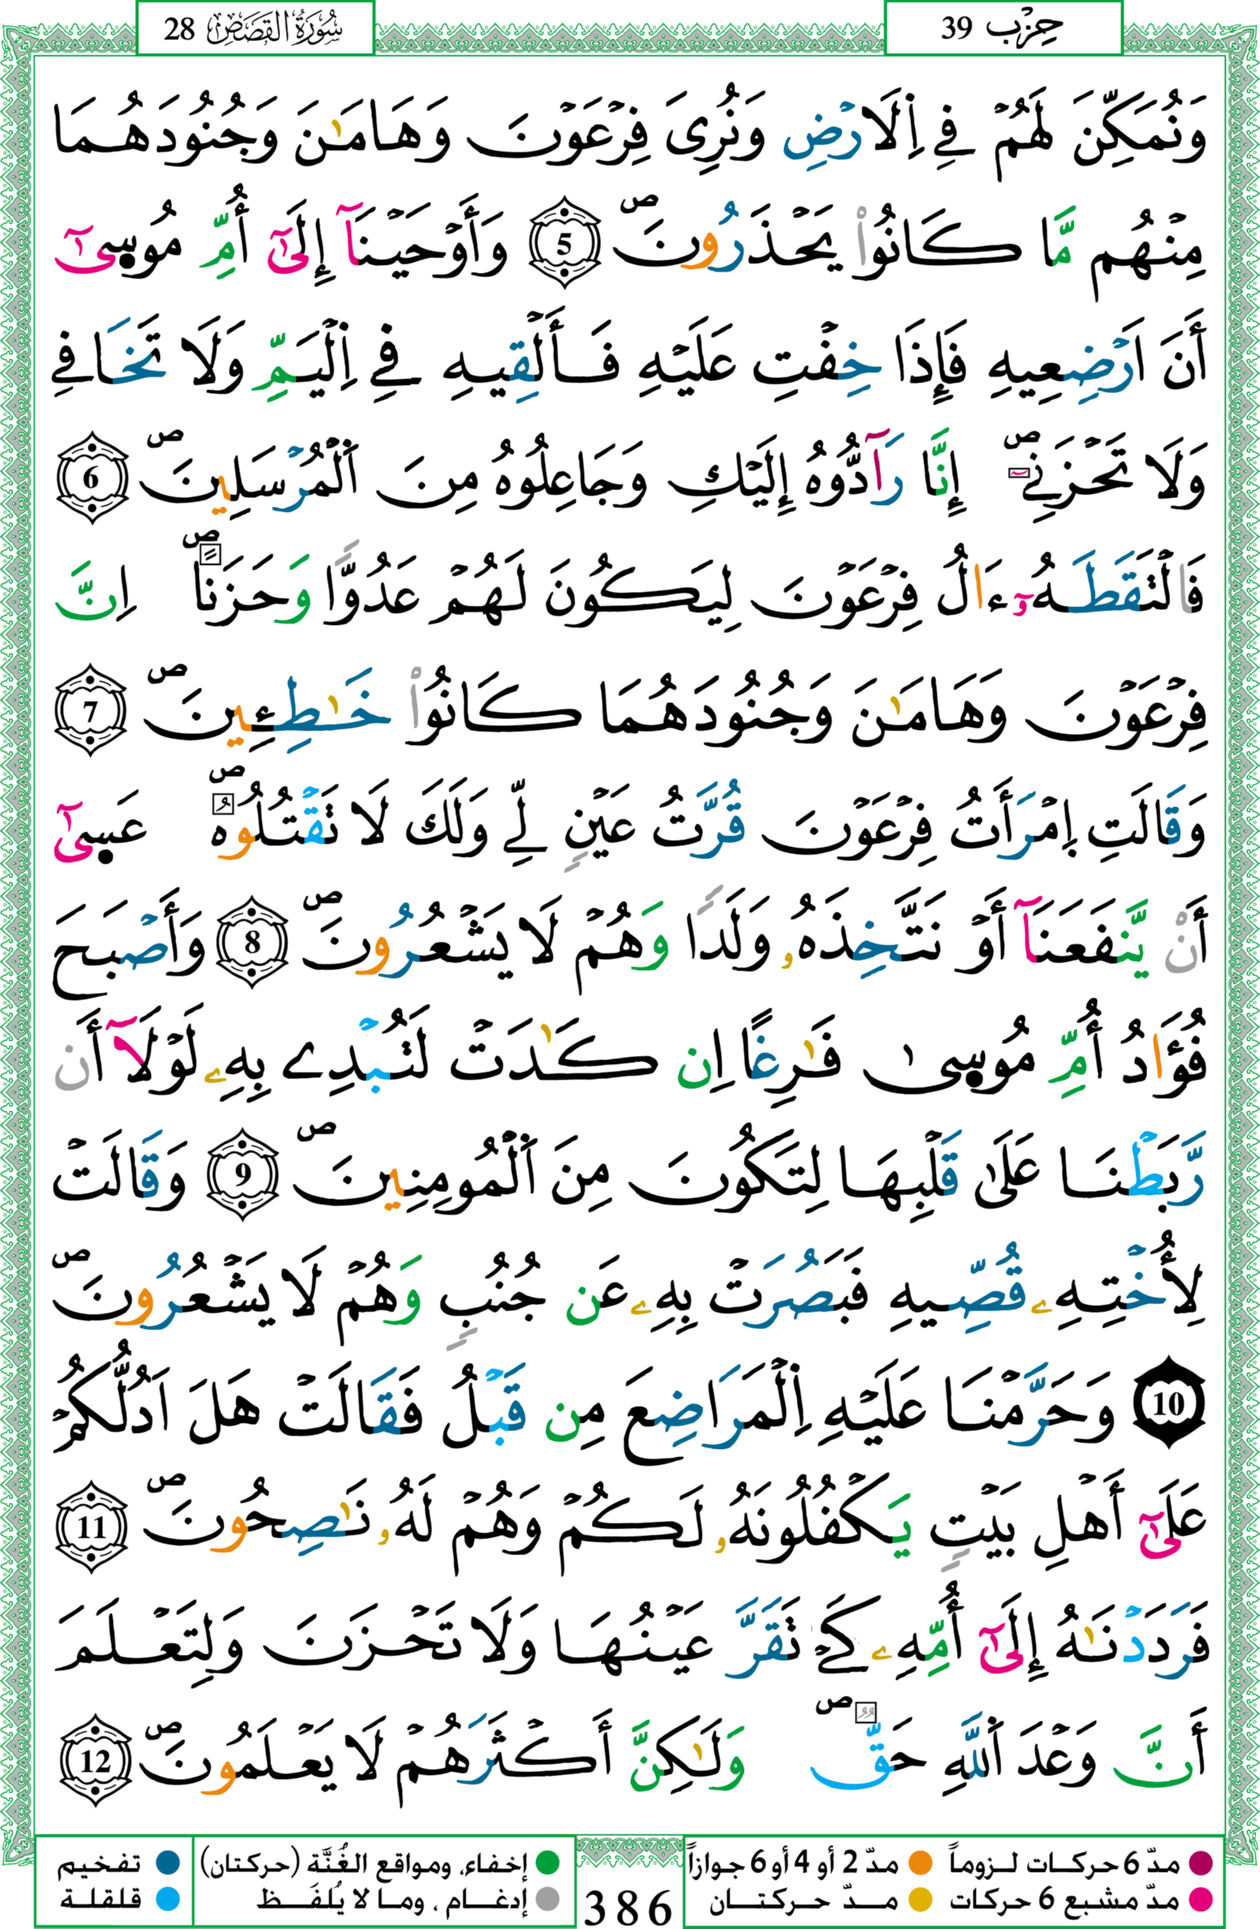 حِزْب 39
سُورَةُ القَصَص 28
وَنُمَكِّنَ لَهُمْ فِي اِ۬لَارْضِ وَنُرِيَ فِرْعَوْنَ وَهَامَٰنَ وَجُنُودَهُمَا
مِنْهُم مَّا كَانُواْ يَحْذَرُونَۖ 5 وَأَوْحَيْنَآ إِلَىٰٓ أُمِّ مُوس۪ىٰٓ
أَنَ اَرْضِعِيهِ فَإِذَا خِفْتِ عَلَيْهِ فَأَلْقِيهِ فِي اِ۬لْيَمِّ وَلَا تَخَافِي
وَلَا تَحْزَنِيۖ إِنَّا رَآدُّوهُ إِلَيْكِ وَجَاعِلُوهُ مِنَ اَ۬لْمُرْسَلِينَۖ 6
فَالْتَقَطَهُۥٓ ءَالُ فِرْعَوْنَ لِيَكُونَ لَهُمْ عَدُوّاٗ وَحَزَناًۖ اِنَّ
فِرْعَوْنَ وَهَامَٰنَ وَجُنُودَهُمَا كَانُواْ خَٰطِـِٕينَۖ 7
وَقَالَتِ اِ۪مْرَأَتُ فِرْعَوْنَ قُرَّتُ عَيْنٖ لِّي وَلَكَ لَا تَقْتُلُوهُۖ عَس۪ىٰٓ
أَنْ يَّنفَعَنَآ أَوْ نَتَّخِذَهُۥ وَلَداٗ وَهُمْ لَا يَشْعُرُونَۖ 8 وَأَصْبَحَ
فُؤَادُ أُمِّ مُوس۪ىٰ فَٰرِغاً اِن كَٰدَتْ لَتُبْدِے بِهِۦ لَوْلَآ أَن
رَّبَطْنَا عَلَىٰ قَلْبِهَا لِتَكُونَ مِنَ اَ۬لْمُومِنِينَۖ 9 وَقَالَتْ
لِأُخْتِهِۦ قُصِّيهِ فَبَصُرَتْ بِهِۦ عَن جُنُبٖ وَهُمْ لَا يَشْعُرُونَۖ
10 وَحَرَّمْنَا عَلَيْهِ اِ۬لْمَرَاضِعَ مِن قَبْلُ فَقَالَتْ هَلَ اَدُلُّكُمْ
عَلَىٰٓ أَهْلِ بَيْتٖ يَكْفُلُونَهُۥ لَكُمْ وَهُمْ لَهُۥ نَٰصِحُونَۖ 11
فَرَدَدْنَٰهُ إِلَىٰٓ أُمِّهِۦ كَيْ تَقَرَّ عَيْنُهَا وَلَا تَحْزَنَ وَلِتَعْلَمَ
أَنَّ وَعْدَ اَ۬للَّهِ حَقّٞۖ وَلَٰكِنَّ أَكْثَرَهُمْ لَا يَعْلَمُونَۖ 12
مدّ 6 حركات لـزوماً مدّ 2 أو 4 أو 6 جوازاً
مدّ مشبع 6 حركات مــدّ حركتــان
386
إخفاء، ومواقع الغُنَّة (حركتان) تفخيم
إدغــام ، ومـا لا يُلفَـظ قلقلة